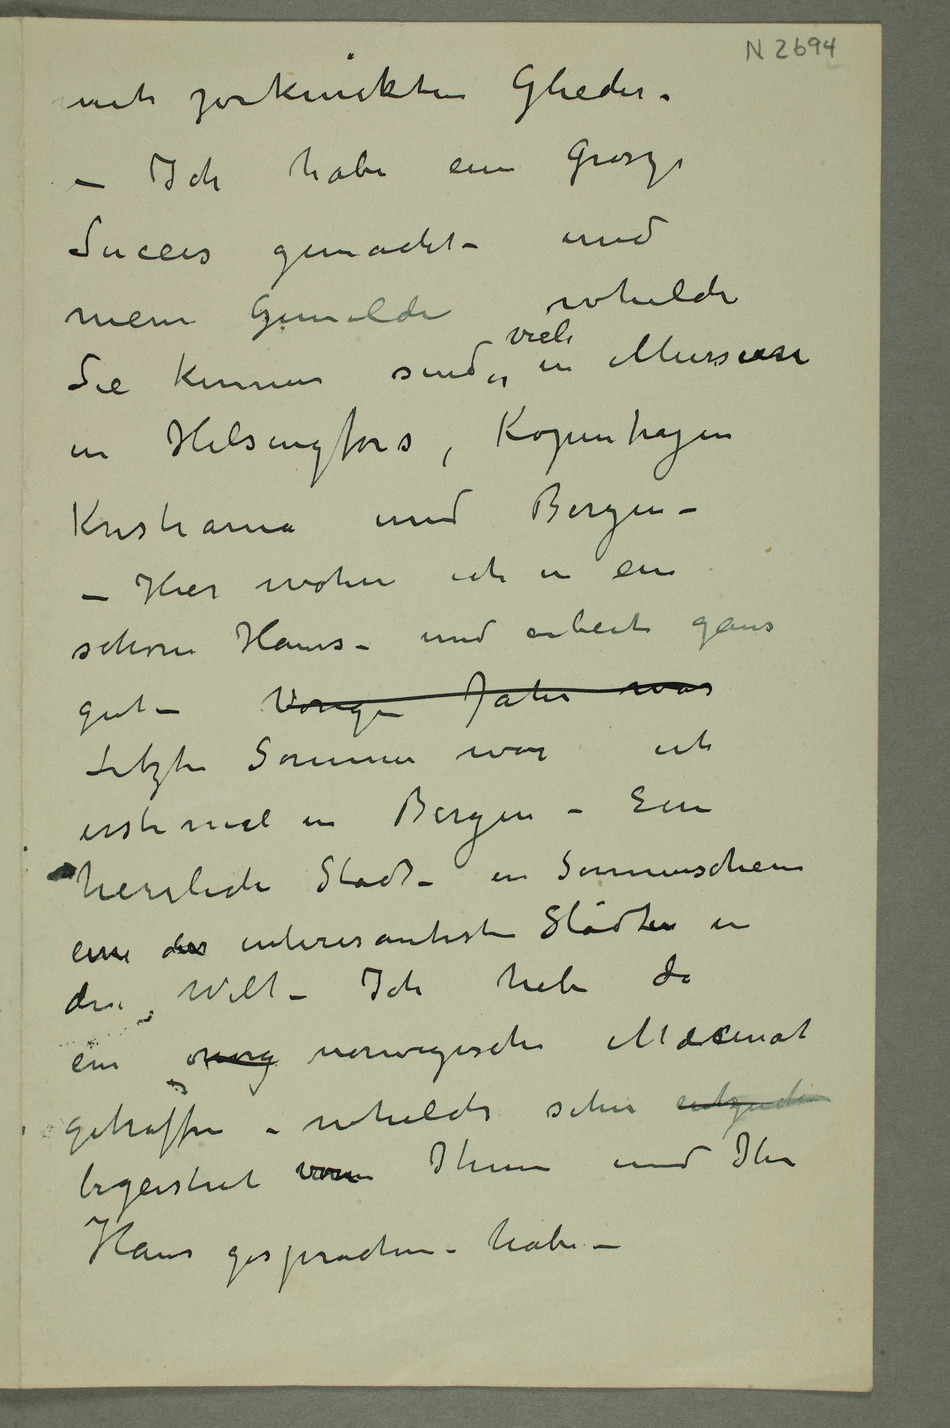 N 2694
mit zerknickten Glieder.
– Ich habe ein grosze
Succes gemacht – und
meine Gemälde whelche
Sie kennen sind viele in Museen
in Helsingfors, Kopenhagen
Kristiania und Bergen –
– Hier wohne ich in ein
schöne Haus – und arbeite gans
gut – Vorige Jahr war
Letzte Sommer war ich
erste mal in Bergen – Eine
herrliche Stadt – in Sonnenschein
eine der interesanteste Städten in
der Welt – Ich habe da
ein norg norwegische Mæcenat
getroffen – whelche sehr entzückt
begeistret von Ihnen und Ihr
Haus gesprochen – habe –